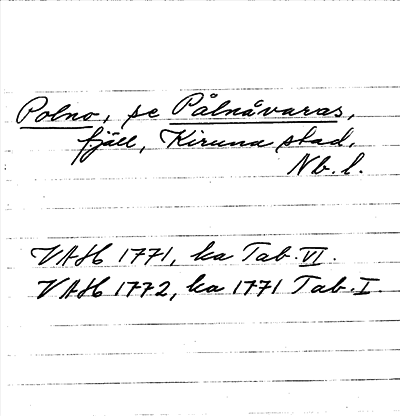 Polno, se Pålnåvaras,
fjäll, Kiruna stad.
Nb. l.
VAH 1771, ka Tab. VI.
VAH 1772, ka 1771 Tab. I.